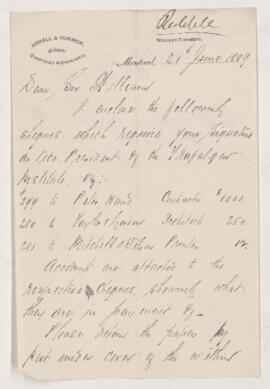 Riddell
RIDDELL & COMMON,
CHARTERED ACCOUNTANTS.
WESTERN CHAMBERS,
Montreal 20th June 1889
Dear Sir William
I enclose the following
cheques which require your signature
as Vice President of the Trafalgar
Institute, viz:-
279 to Peter Hand Contractor $1000.
280 to Taylor & Gordon Architects 250
281 to Mitchell & Wilson Printers 12.
Accounts are attached to the
respective cheques, showing what
they are in payment of.-
Please return the papers
put under cover of the within